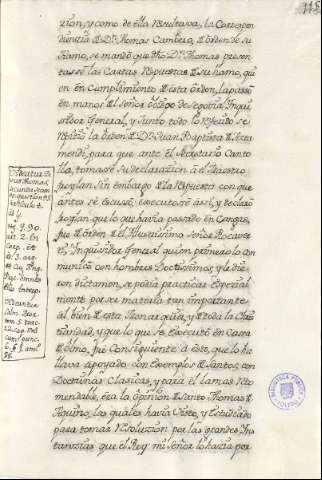 115
zion, y como de ella resultava, la Correspon
dencia de Dn. Thomas Cambero, de orden de su
Ramo, se mandó que dho Dn. Thomas presen
tasse las Cartas Respuestas de su hamo, qui
en en Cumplimiento de esta orden, la passó
en manos del señor obispo de Segovia Inqui
sidor General, y Junto todo lo referido se
la orden de Dn. Juan Baptista de
mendi, para que ante el Secretario Canto
lla, tomasse su declarazion a el Maestro
froylan Sin embargo de la Repuesta con que
antes se escusó, executolo assi, y declaró
froylan que lo que havia passado en Cangas,
fue de orden del Illustrissimo señor Rocaver
ti, Inquisidor General quien primero lo co
municó con hombres Doctissimos, y le die
ron dictamen, se podia practicar, Especial
mente por ser materia tan importante
al bien de esta Monarquia, y de toda la Chris
tiandad, y que lo que se executó en Cassa
fue Consiguiente a esto, que lo ha
llava apoyado con Exemplos de Santos, con
Doctrinas Clasicas, y para el la mas Reco
mendable, era la opinion de Santo Thomas de
Aquino, las quales havia Visto, y estudiado
para tomar Resoluzion por las grandes Ins
tanzias que el Rey mi señor lo hazia por
BIBLIOTECA PUBLICA
TOLEDO